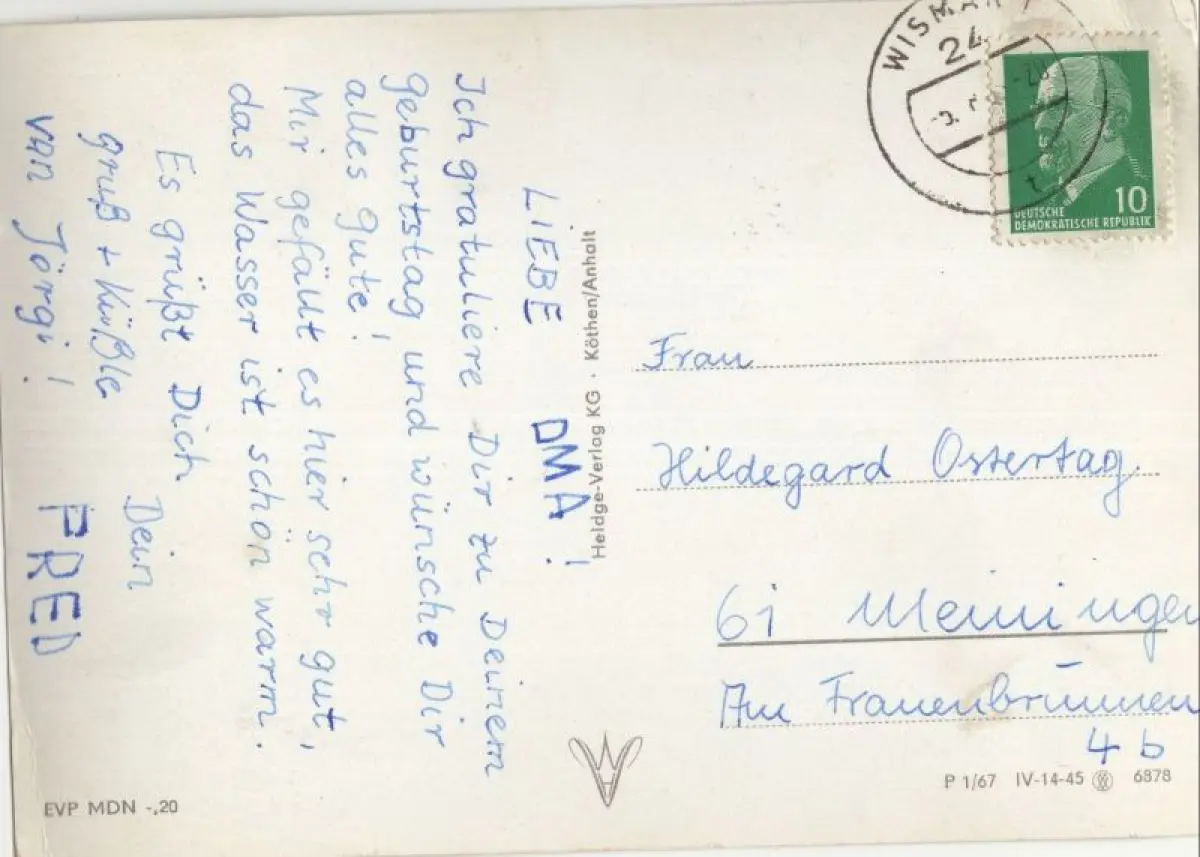 LIEBE OMA!
Ich gratuliere Dir zu Deinem
geburtstag und wünsche Dir
alles gute!
Mir gefällt es hier sehr gut,
das Wasser ist schon warm.
Es grüßt Dich Dein
FRED
gruß + Küßle
van Jörgi!
Heldge-Verlag KG · Köthen/Anhalt
WISMAR 1
24
10
DEUTSCHE
DEMOKRATISCHE REPUBLIK
Frau
Hildegard Ostertag.
61 Meiningen
Am Frauenbrunnen
4 b
P 1/67 IV-14-45 6878
EVP MDN -,20